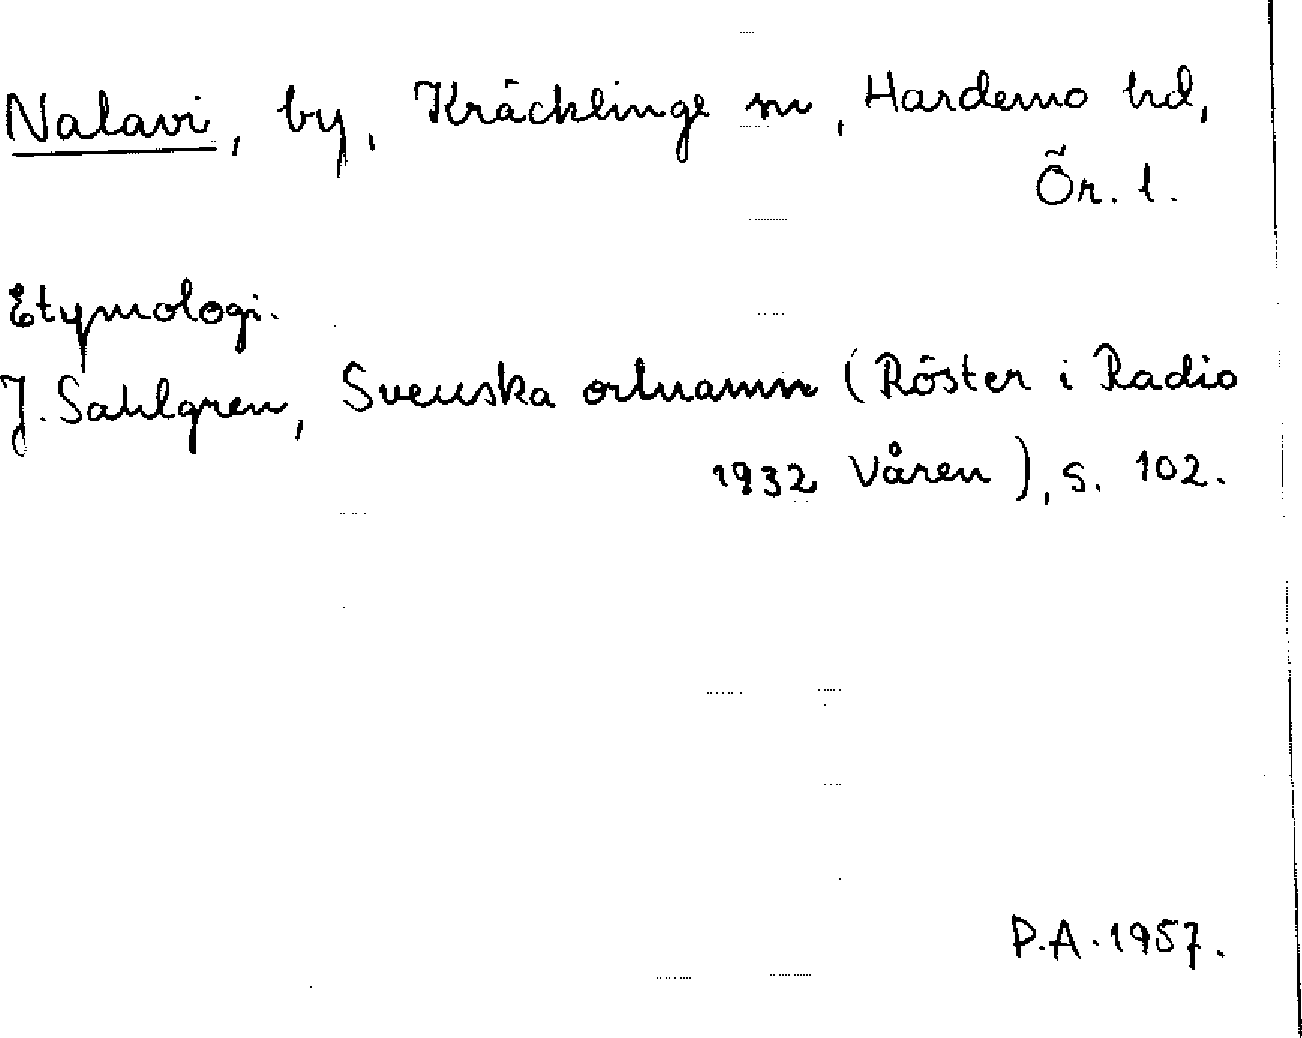 Nalavi, by, Kräcklinge sn, Hardemo hd,
Ör. l.
Etymologi.
J. Sahlgren, Svenska ortnamn (Röster i Radio
1932 Våren), s. 102.
P.A. 1957.